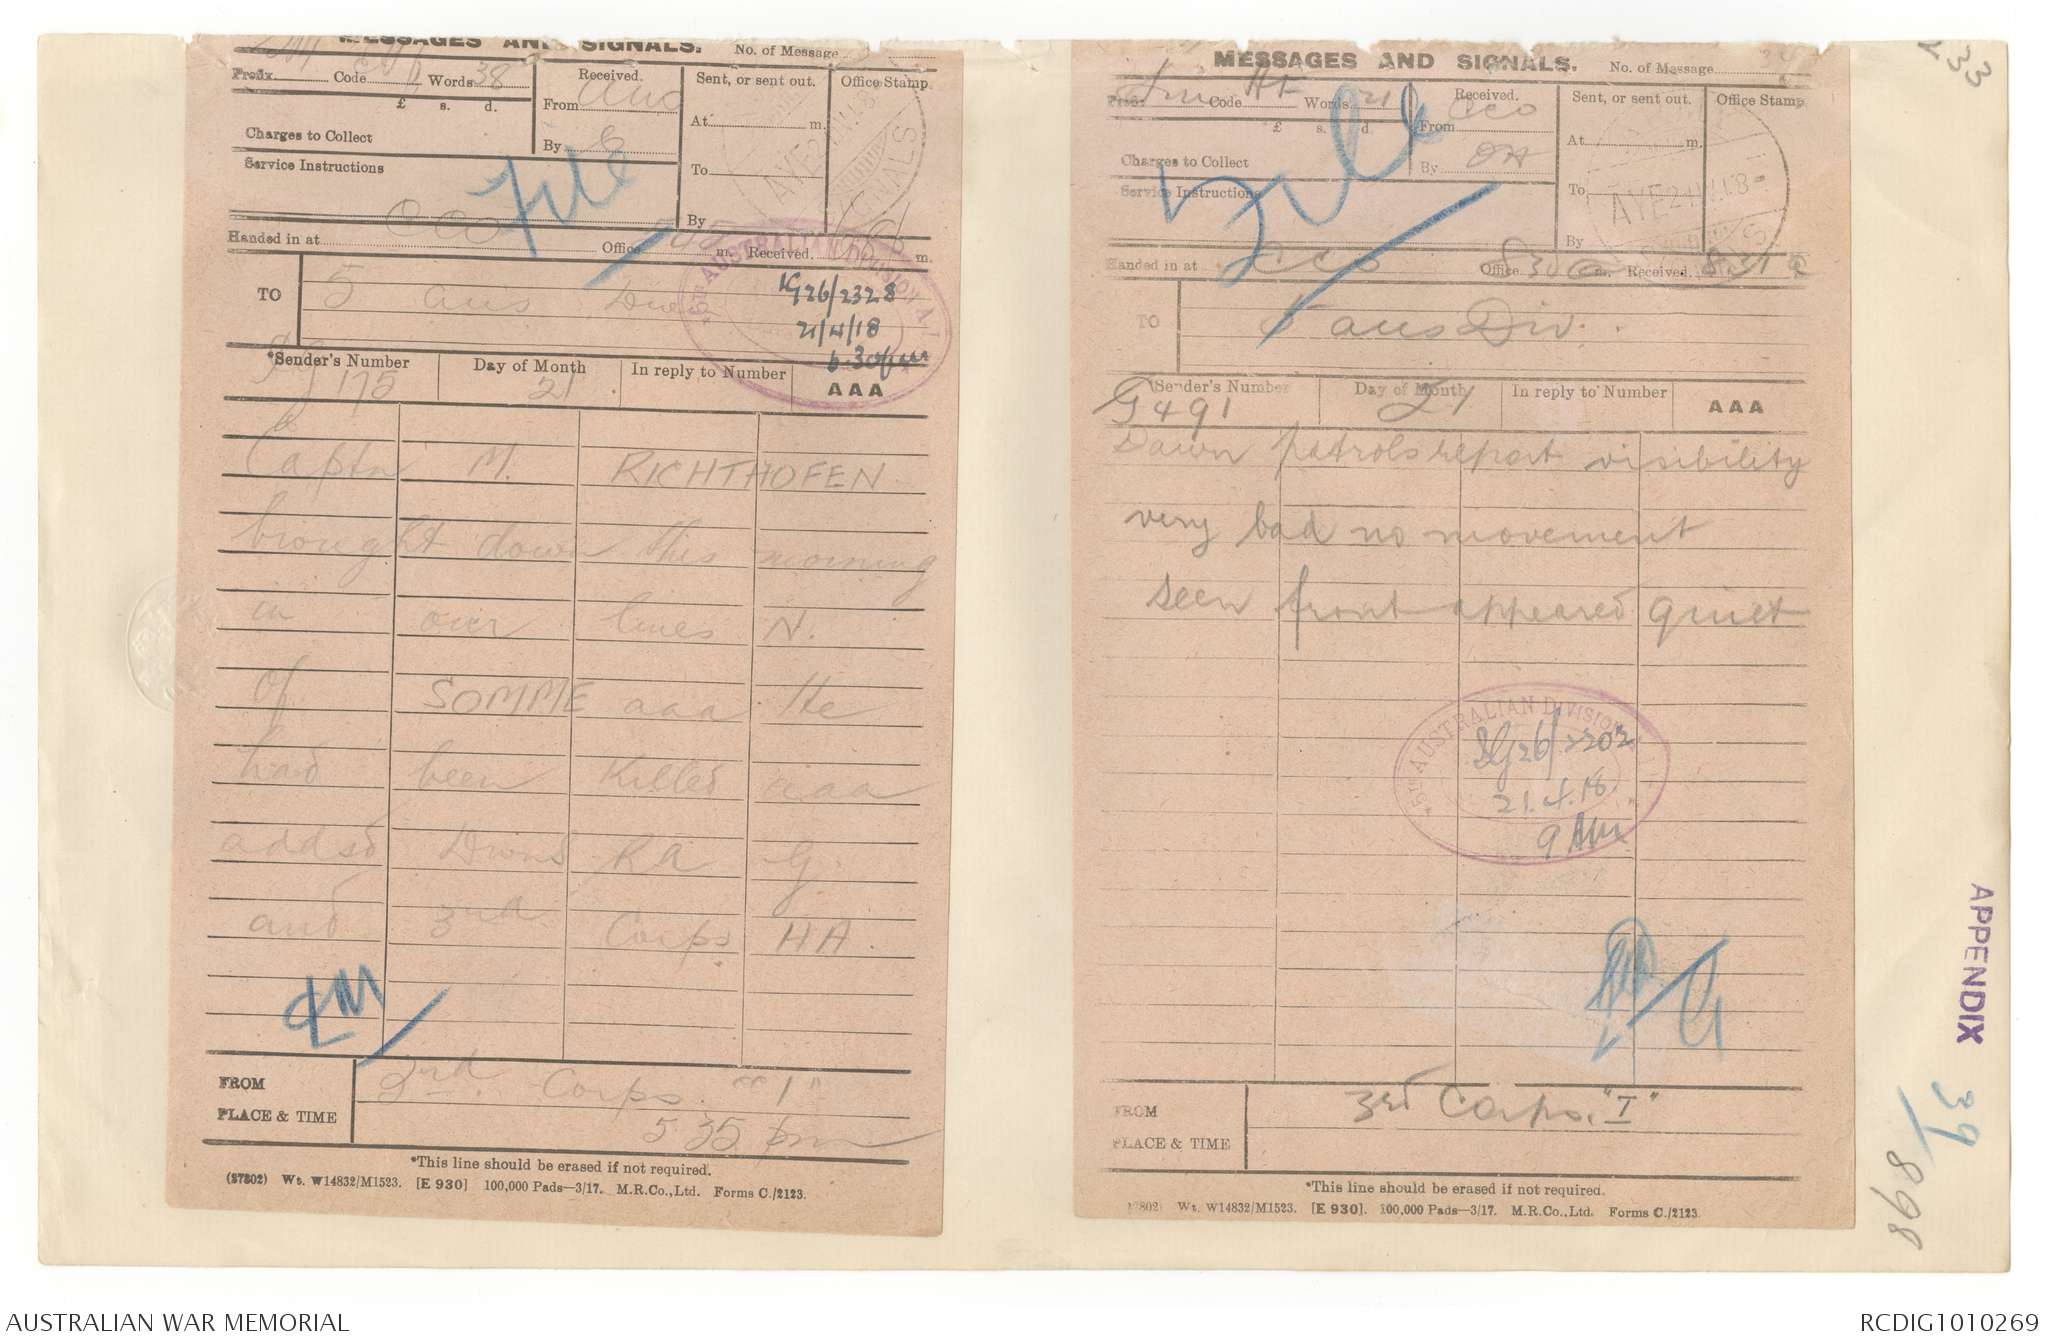 MESSAGES AND SIGNALS.
No. of Message
Prefix Code Words 38
Received.
Sent, or sent out.
Office Stamp.
£ s. d.
From
At m.
Charges to Collect
By
Service Instructions
To
File
By
AYE 21.IV.18
SIGNALS
Handed in at CCO Office m. Received. m.
5TH AUSTRALIAN DIVISION
TO
5 Aus Div
IG26/2328
21/4/18
6.30pm
*Sender's Number
Day of Month
In reply to Number
AAA
175
21
Captn M. RICHTHOFEN
brought down this morning
in our lines N.
of SOMME aaa He
had been killed aaa
addsd Divns RA G
and 3rd Corps HA.
FROM
3rd Corps "I"
PLACE & TIME
5 35 pm
*This line should be erased if not required.
(27802) Wt. W14832/M1523. [E 930] 100,000 Pads—3/17. M.R.Co.,Ltd. Forms C./2123.
MESSAGES AND SIGNALS.
No. of Message
Prefix Code Words 21
Received.
Sent, or sent out.
Office Stamp.
£ s. d.
From CCO
At m.
Charges to Collect
By
Service Instructions
To
File
By
AYE 21.IV.18
Handed in at CCO Office 830 a m. Received 8.31 a
TO
5 Aus Div.
Sender's Number
Day of Month
In reply to Number
AAA
G491
21
Dawn patrols report visibility
very bad no movement
seen front appeared quiet
5TH AUSTRALIAN DIVISION
IG26/2202
21.4.18
9 AM
FROM
3rd Corps. "I"
PLACE & TIME
*This line should be erased if not required.
7802) Wt. W14832/M1523. [E 930]. 100,000 Pads—3/17. M.R.Co.,Ltd. Forms C./2123.
233
APPENDIX
39
898
AUSTRALIAN WAR MEMORIAL
RCDIG1010269